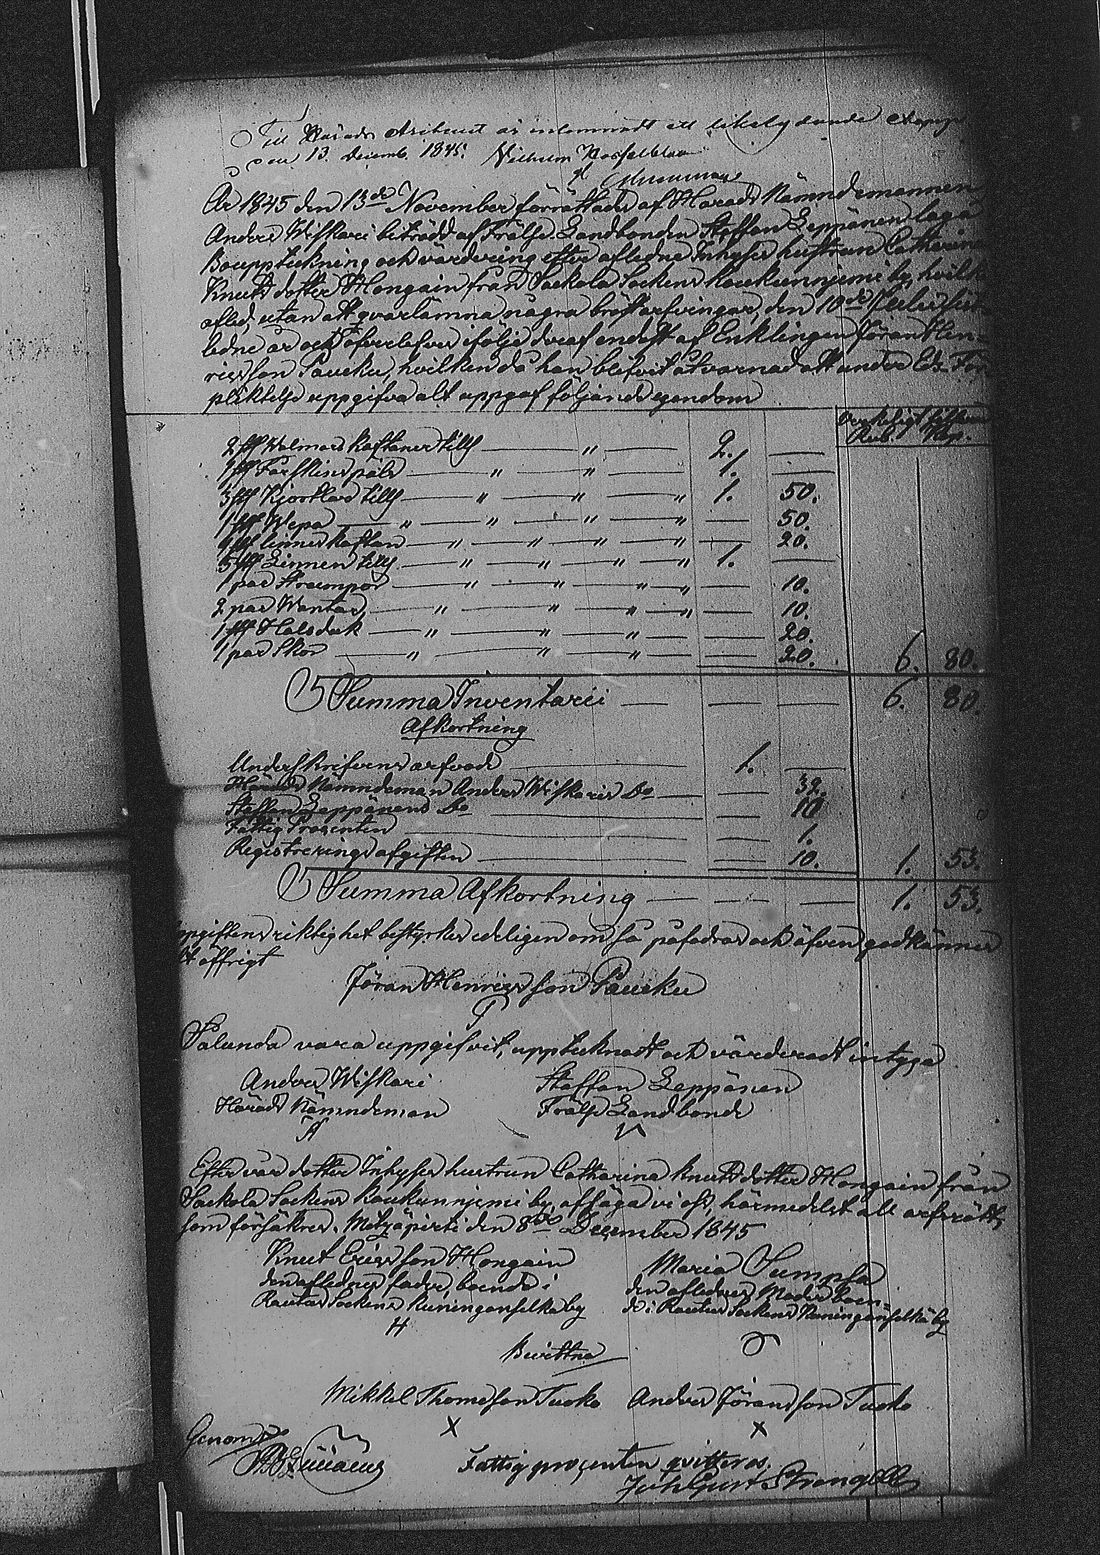 Till Härads Arkivet är inlemnadt ett likalydande Exemplar
den 13. Decemb. 1845. Vilhelm Hasselblatt
År 1845 den 13de November förrättades af Härads Nämndemannen
Anders Wiskari biträdd af Frälse Landbonden Staffan Leppänen laga
Bouppteckning och värdering efter aflednc Inhyses hustrun Catharina
Knuts dotter Hongain från Sackola Sockens Koukunnjemi by, hvilken
afled, utan att qvarlämna några bröstarfvingar, den 10de
ledne år och öfverlefves i följe deraf endast af Enklingen Jöran Hen-
ricsson Paucku, hvilken då han blifvit åtvarnad att under Eds För-
pliktelse uppgifva allt uppgaf följande egendom
Rub. Kop.
2 st Walmars kaftaner till — " — 2. —
1 st Fårskins päls — " — " — 1. —
3 st Kjortlar till — " — " — " 1. 50.
1 st Wepa — " — " — " — " — 50.
1 st linnes kaftan — " — " — " — " — 20.
5 st Linnen till — " — " — " — " 1. —
1 par Strumpor — " — " — " — " — 10.
2 par Wantar — " — " — " — " — 10.
1 st Halsduk — " — " — " — 20.
1 par Skor — " — " — " — 20. 6. 80.
Summa Inventarii — — — 6. 80.
Afkortning
Underskrifvens arfvode — 1. —
Härads Nämndeman Anders Wiskaris Do — — 32.
Staffan Leppänens Do — — 10
Fattig Procenten — — 1.
Registrerings afgiften — — 10. 1. 53.
Summa Afkortning — — — 1. 53.
Uppgiftens riktighet bestyrkes edeligen om så påfodras och äfven godkännes
allt öfrigt
Jöran Henricsson Paucku
Sålunda vara uppgifvit, upptecknadt och värderadt intyga
Anders Wiskari Staffan Leppänen
Härads Nämndeman Frälse Landbonde
Efter vår dotter Inhyses hustrun Catharina Knuts dotter Hongain från
Sackola Sockens Koukunnjemi by, afsäga vi oss, härmedelst all arfsrätt,
som försäkras. Metzäpirtti den 8de December 1845
Knut Ericsson Hongain Maria Sumpsa
den aflednes fader, boende i den aflednes Moder boen-
Rautus Sockens Keninganselkä by de i Rautus Sockens Keninganselkä by
H
Bevittna
Mikkel Thomasson Tuoko Anders Jöransson Tuoko
X X
Genom
Fattigprocenten qvitteras.
Joh Gust Strengell